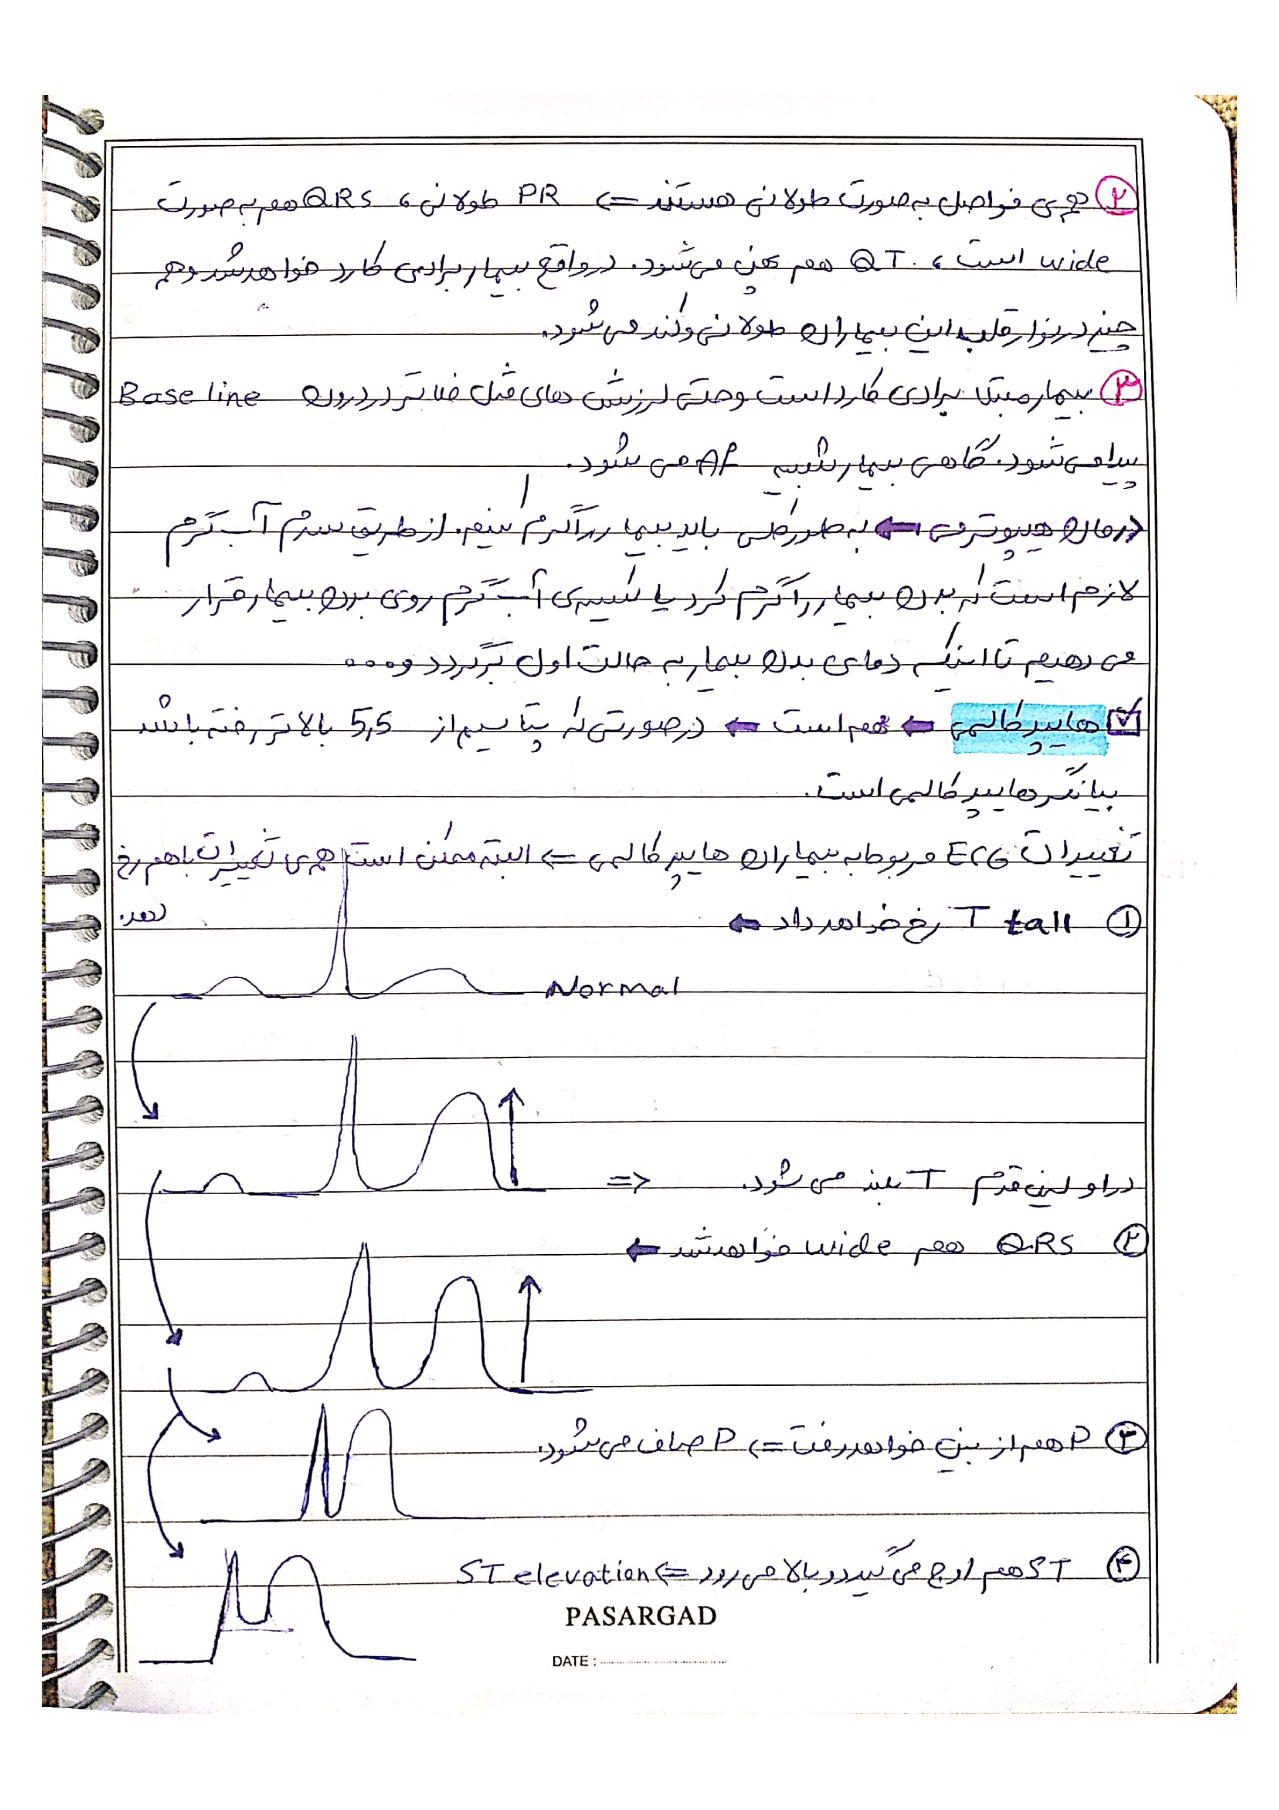 ② همه‌ی فواصل به صورت طولانی هستند => PR طولانی، QRS هم به صورت
wide است، QT هم پهن می‌شود. در واقع بیمار برادی کارد خواهد شد و هم
چیز در نوار قلب این بیماران طولانی و کند می‌شود.
③ بیمار مبتلا برادی کارد است و حتی لرزش های مثل فلاتر در درون Base line
پیدا می‌شود. گاهی بیمار شبیه AF می شود.
درمان هیپوترمی ← به طور کلی باید بیمار را گرم کنیم. از طریق سرم آب گرم
لازم است که بدن بیمار را گرم کرد یا کیسه‌ی آب گرم روی بدن بیمار قرار
می دهیم تا اینکه دمای بدن بیمار به حالت اول برگردد و ....
☑ هایپرکالمی ← مهم است ← در صورتی که پتاسیم از 5,5 بالاتر رفته باشد
بیانگر هایپرکالمی است.
تغییرات ECG مربوط به بیماران هایپرکالمی => البته ممکن است همه‌ی تغییرات با هم رخ
دهد.
① T tall رخ خواهد داد ←
Normal
در اولین قدم T بلند می شود. =>
② QRS هم wide خواهد شد ←
③ P هم از بین خواهد رفت => P صاف می‌شود.
④ ST هم اوج می‌گیرد و بالا می رود => ST elevation
PASARGAD
DATE :